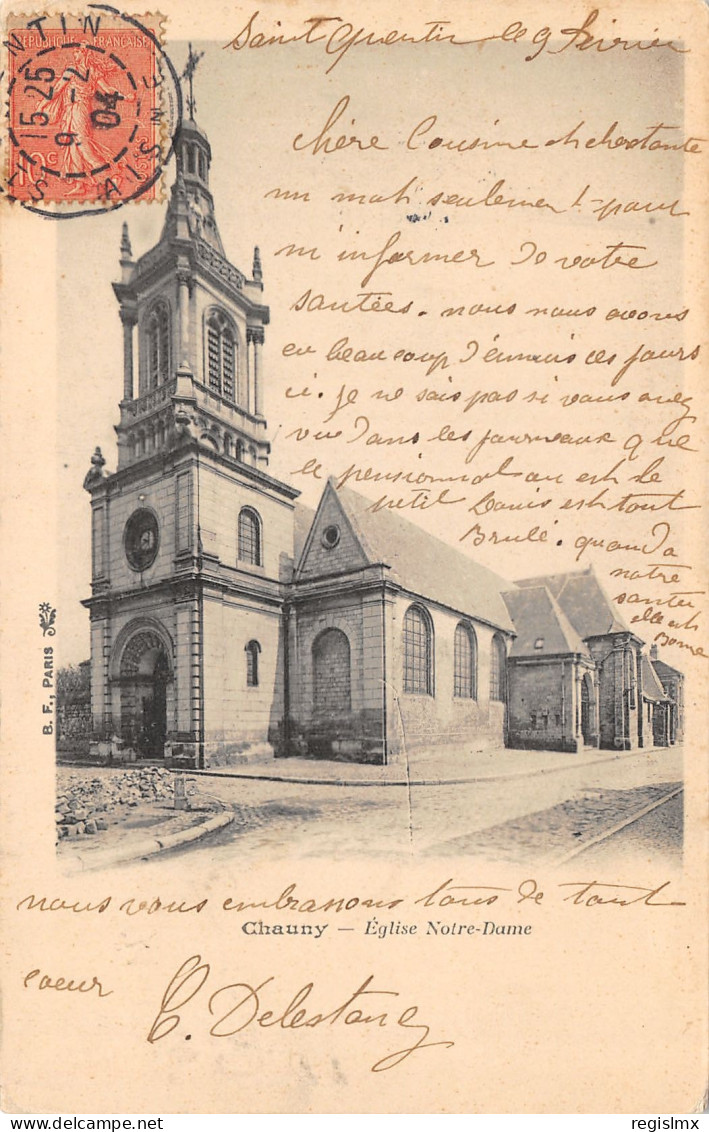 RÉPUBLIQUE FRANÇAISE
10c
15 25
9 - 2
04
AISNE
Saint Quentin le 9 Février
chère Cousine et chertante
un mot seulement pour
m'informer de votre
santées. nous nous avons
eu beaucoup d'ennuis ces jours
ci. je ne sais pas si vous avez
vue dans les journeaux que
le pensionnat ou est le
petit Louis est tout
Brulé. quand a
notre
santer
elle est
Bonne
nous vous embrassons tous de tout
coeur
C. Delestang
Chauny — Église Notre-Dame
B. F., PARIS
regislmx